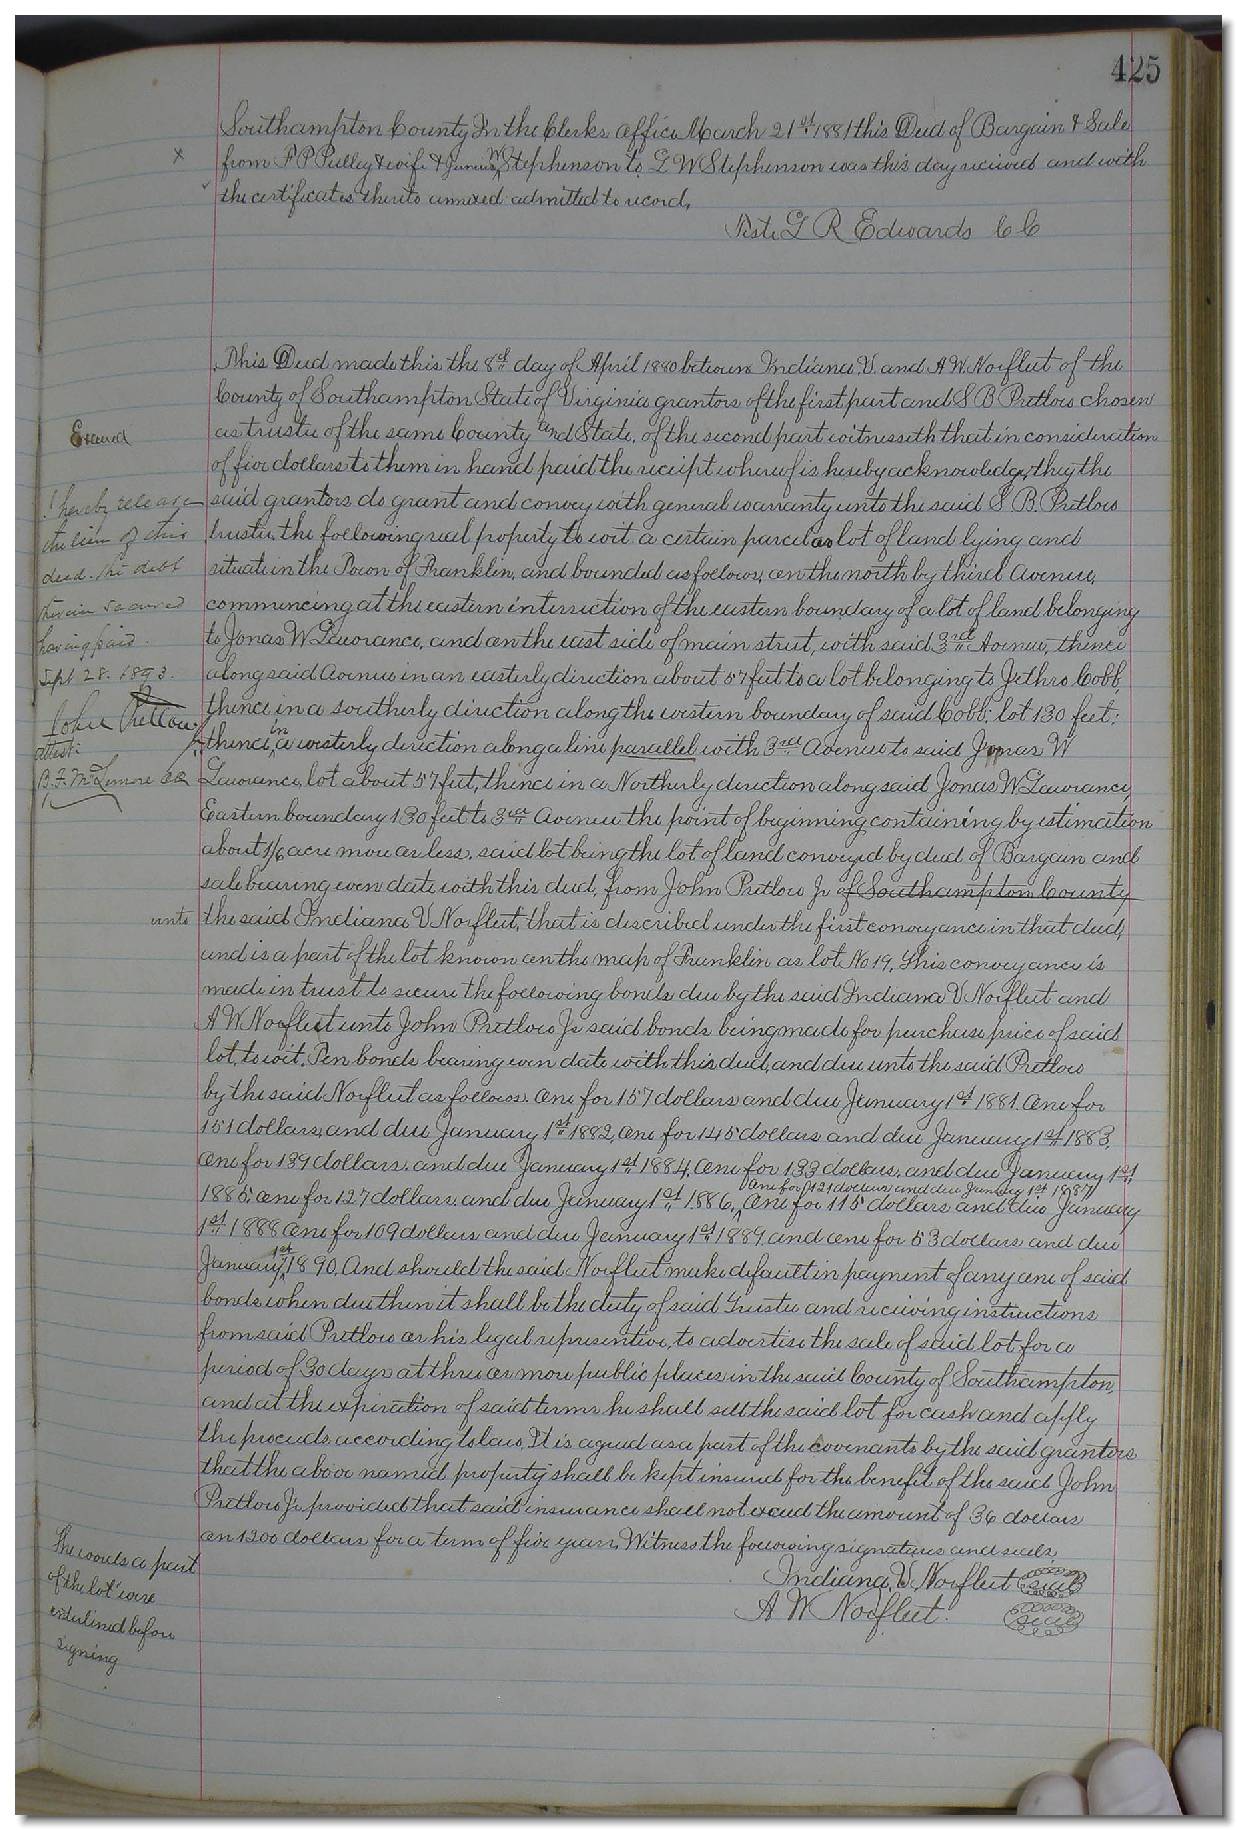 425
Southampton County In the Clerks Office March 21st 1881 this Deed of Bargain & Sale
x from P P Pulley & wife & James M Stephenson to G W Stephenson was this day received and with
the certificates thereto annexed admitted to record,
Teste G R Edwards C C
This Deed made this the 8th day of April 1880 between Indiana V. and A W Norfleet of the
County of Southampton State of Virginia grantors of the first part and S B Pretlow chosen
Exured
as trustee of the same County and State, of the second part witnesseth that in consideration
of five dollars to them in hand paid the receipt whereof is hereby acknowledge, they the
said grantors do grant and convey with general warranty unto the said S B. Pretlow
trustee the following real property to wit a certain parcel or lot of land lying and
situate in the Town of Franklin, and bounded as follows, on the north by third Avenue,
commencing at the eastern intersection of the eastern boundary of a lot of land belonging
to Jonas W Lawrance, and on the east side of main street, with said 3rd Avenue, thence
along said Avenue in an easterly direction about 57 feet to a lot belonging to Jethro Cobb,
thence in a southerly direction along the western boundary of said Cobb; lot 130 feet;
thence in a westerly direction along a line parallel with 3rd Avenue to said Jonas W
Lawrence, lot about 57 feet, thence in a Northerly direction along said Jonas W Lawrance,
Eastern boundary 130 feet to 3rd Avenue the point of beginning containing by estimation
about 1/6 acre more or less. said lot being the lot of land conveyed by deed of Bargain and
sale bearing even date with this deed, from John Pretlow Jr of Southampton County
unto the said Indiana V Norfleet, that is described under the first conveyance in that deed,
and is a part of the lot known on the map of Franklin as lot No 19, This conveyance is
made in trust to secure the following bonds due by the said Indiana V Norfleet and
A W Norfleet unto John Pretlow Jr said bonds being made for purchase price of said
lot, to wit. Ten bonds bearing even date with this deed, and due unto the said Pretlow
by the said Norfleet as follows. One for 157 dollars and due January 1st 1881. One for
151 dollars, and due January 1st 1882, One for 145 dollars and due January 1st 1883,
One for 139 dollars, and due January 1st 1884, One for 133 dollars, and due January 1st
One for 121 dollars and due January 1st 1887
1885, One for 127 dollars. and due January 1st 1886, One for 115 dollars and due January
1st 1888 One for 109 dollars and due January 1st 1889 and one for 53 dollars and due
January 1st 1890, And should the said Norfleet make default in payment of any one of said
bonds when due then it shall be the duty of said Trustee and receiving instructions
from said Pretlow or his legal representive, to advertise the sale of said lot for a
period of 30 days at three or more public places in the said County of Southampton,
and at the expiration of said terms he shall sell the said lot for cash and apply
the proceeds according to law, It is agreed as a part of the covenants by the said grantors
that the above named property shall be kept insured for the benefit of the said John
Pretlow Jr provided that said insurance shall not exceed the amount of 36 dollars
on 1200 dollars for a term of five years, Witness the following signatures and seals,
Indiana V. Norfleet seal
A W Norfleet. seal
I hereby release
the lien of this
deed. the debt
therein secured
having paid.
Sept 28. 1893.
John Pretlow
attest:
B. F. McLemore CC
The words a part
of the lot were
enterlined before
signing